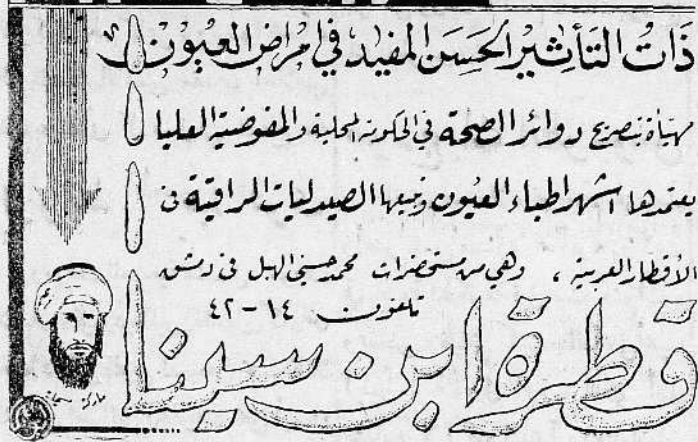 ذات التأثير الحسن المفيد في امراض العيون
مهيأة بتصريح دوائر الصحة في الحكومة المحلية والمفوضية العليا
يعتمدها اشهر اطباء العيون وتبيعها الصيدليات الراقية في
الأقطار العربية ، وهي من مستحضرات محمد حسني الهبل في دمشق
تلفون ١٤-٤٢
قطرة ابن سينا
ماركة مسجلة